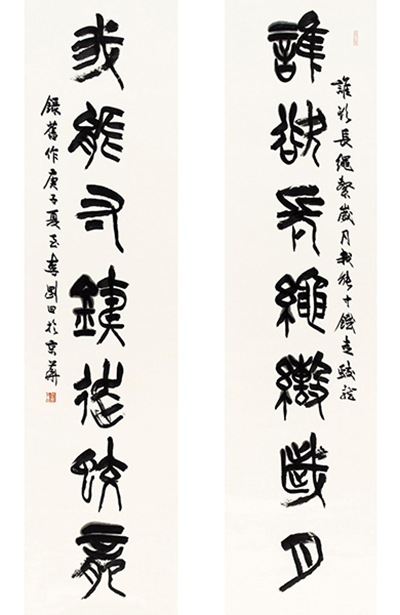 誰欲長繩繫歲月我能寸鐵走蛟龍
誰欲長繩繫歲月
我能寸鐵走蛟龍
錄舊作庚子夏至李剛田於京華